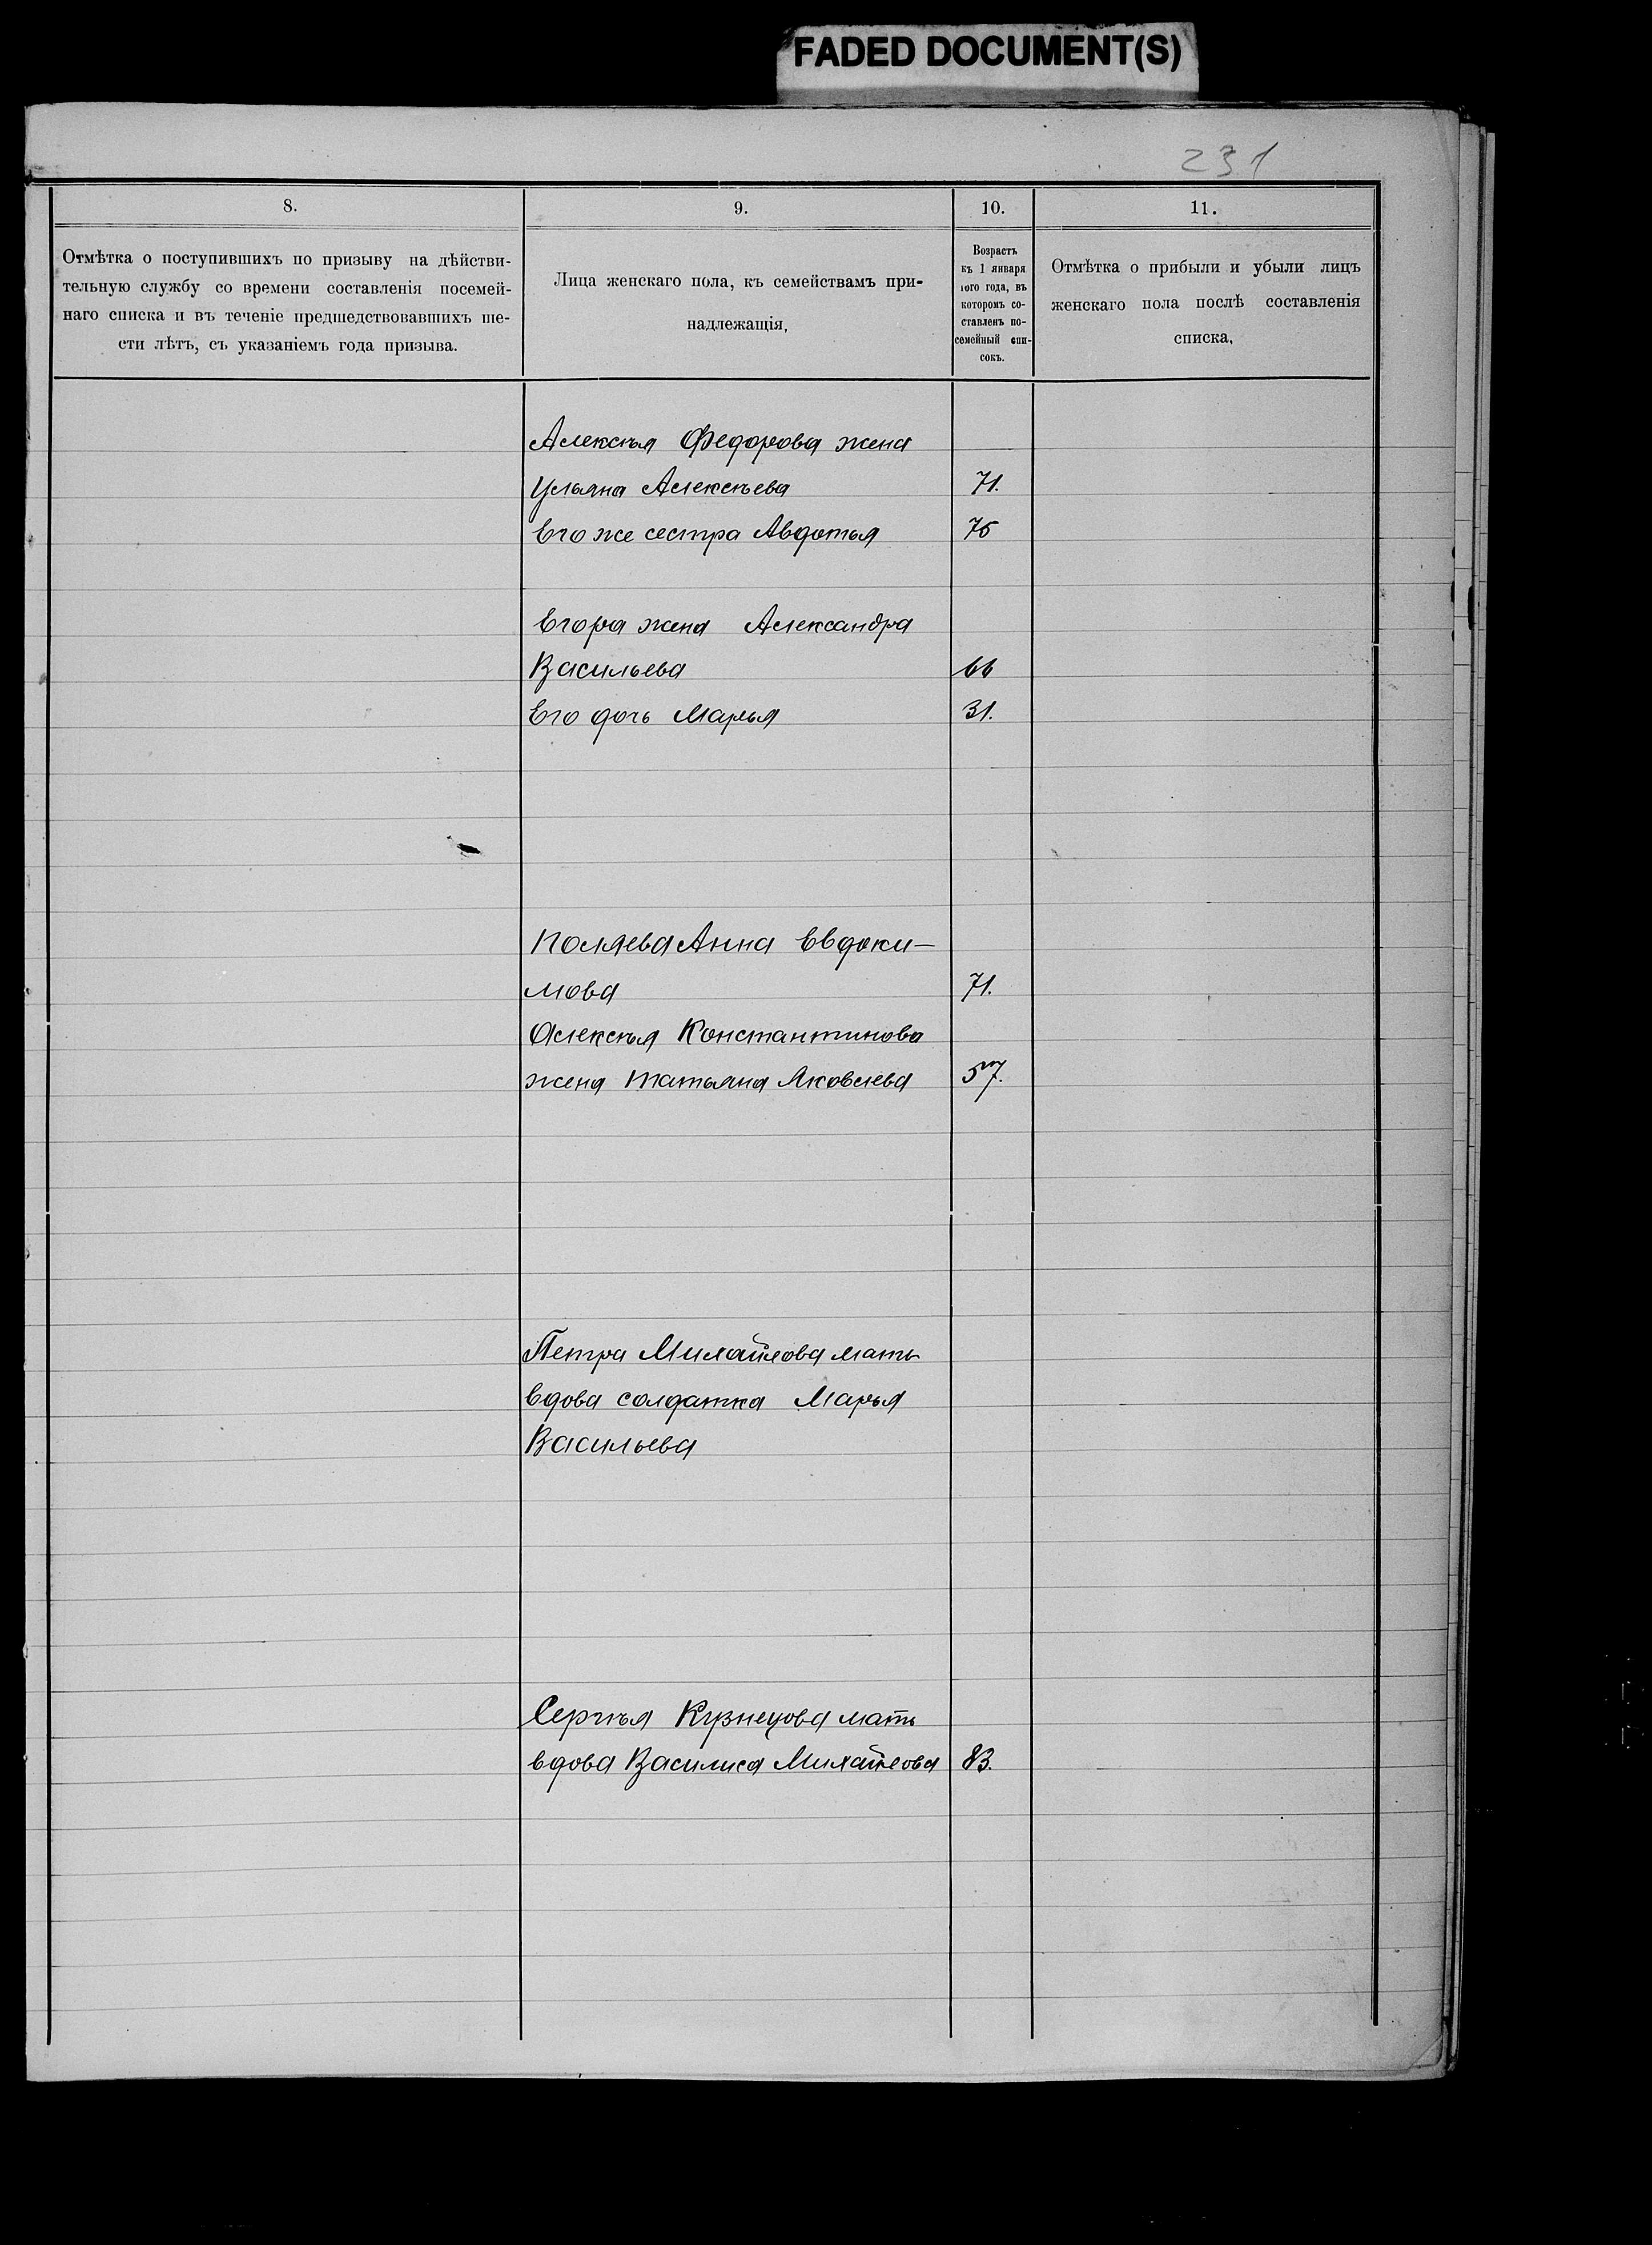 FADED DOCUMENT(S)
231
8.
9.
10.
11.
Отмѣтка о поступившихъ по призыву на дѣйстви-
тельную службу со времени составленія посемей-
наго списка и въ теченіе предшедствовавшихъ ше-
сти лѣтъ, съ указаніемъ года призыва.
Лица женскаго пола, къ семействамъ при-
надлежащія,
Возрастъ
къ 1 января
того года, въ
которомъ со-
ставленъ по-
семейный спи-
сокъ.
Отмѣтка о прибыли и убыли лицъ
женскаго пола послѣ составленія
списка,
Алексѣя Федорова жена
Ульяна Алексѣева 71.
Его же сестра Авдотья 75
Егора жена Александра
Васильева 66
Его дочь Марья 31.
Анна Евдоки-
мова 71.
Алексѣя Константинова
жена Татьяна Яковлева 57.
Петра Михайлова мать
вдова солдатка Марья
Васильева
Сергѣя Кузнецова мать
вдова Василиса Михайлова 83.